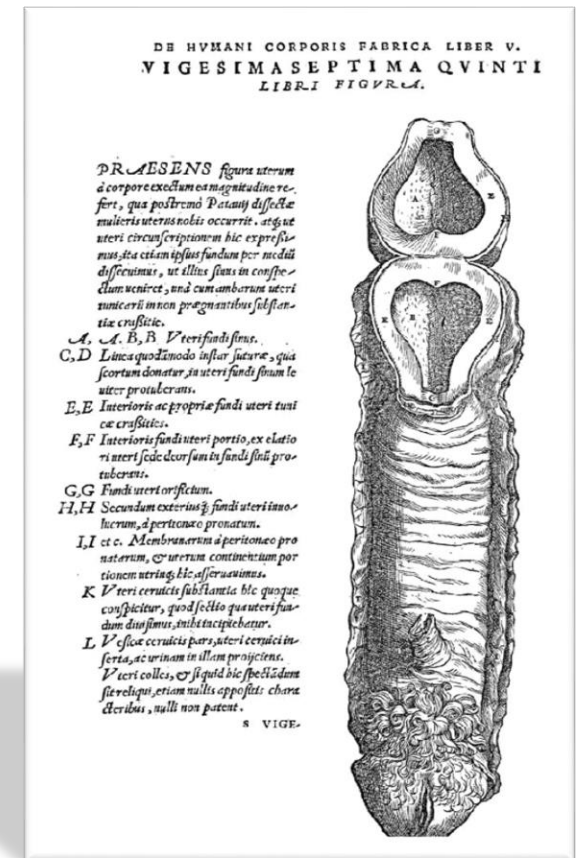 DE HVMANI CORPORIS FABRICA LIBER V.
VIGESIMASEPTIMA QVINTI
LIBRI FIGVRA.
PRAESENS figura uterum
à corpore exectum ea magnitudine re-
fert, qua postremò Patauij dissectæ
mulieris uterus nobis occurrit. atq; ut
uteri circunscriptionem hic expressi-
mus, ita etiam ipsius fundum per mediũ
dissecuimus, ut illius sinus in conspe-
ctum ueniret, unà cum ambarum uteri
tunicarũ in non prægnantibus substan-
tiæ crassitie.
A, A. B, B Vteri fundi sinus.
C, D Linea quodãmodo instar suturæ, qua
scortum donatur, in uteri fundi sinum le
uiter protuberans.
E, E Interioris ac propriæ fundi uteri tuni
cæ crassities.
F, F Interioris fundi uteri portio, ex elatio
ri uteri sede deorsum in fundi sinũ pro-
tuberans.
G, G Fundi uteri orificium.
H, H Secundum exteriusq; fundi uteri inuo-
lucrum, à peritonæo pronatum.
I, I et c. Membranarum à peritonæo pro
natarum, & uterum continentium por
tionem utrinq; hic asseruauimus.
K Vteri ceruicis substantia hîc quoque
conspicitur, quod sectio qua uteri fun-
dum diuisimus, inibi incipiebatur.
L Vesicæ ceruicis pars, uteri ceruici in-
serta, ac urinam in illam proijciens.
Vteri colles, & si quid hic spectãdum
sit reliqui, etiam nullis appositis chara
cteribus, nulli non patent.
s VIGE-